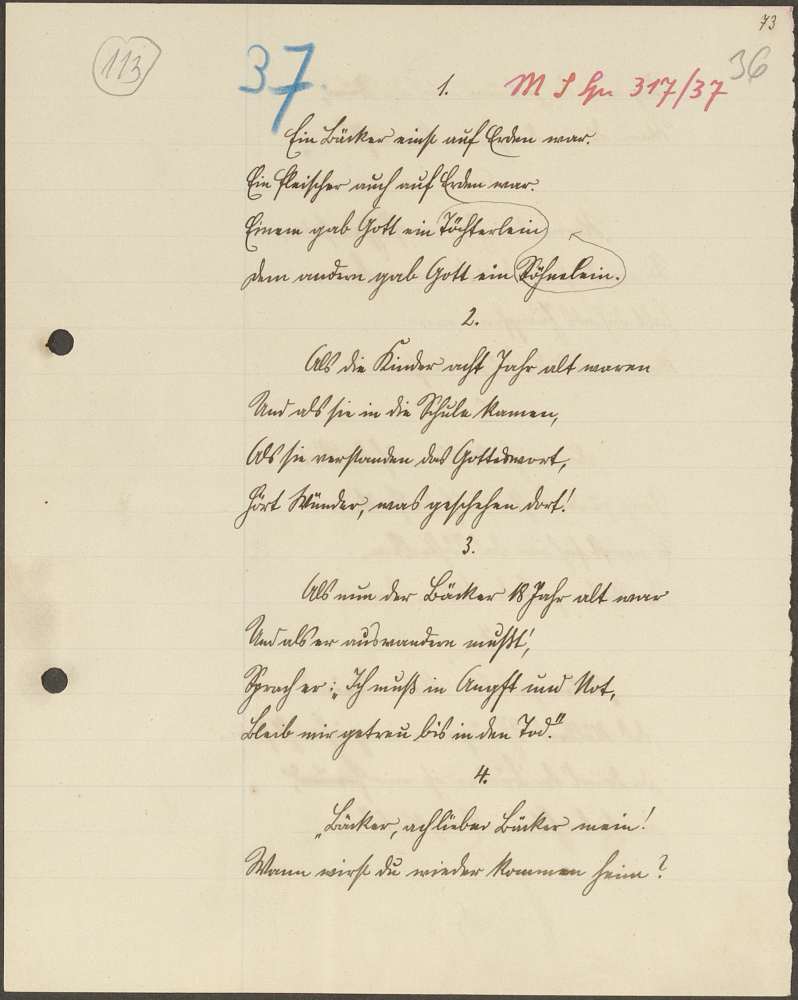 73
113
37.
36
1.
M S Gu 317/37
Ein Bäcker einst auf Erden war.
Ein Fleischer auch auf Erden war.
Einem gab Gott ein Töchterlein
Dem andern gab Gott ein Söhnelein.
2.
Als die Kinder acht Jahr alt waren
Und als sie in die Schule kamen,
Als sie verstanden das Gotteswort,
Hört Wunder, was geschehen dort!
3.
Als nun der Bäcker 18 Jahr alt war
Und als er auswandern mußt',
Sprach er: „Ich muß in Angst und Not,
Bleib mir getreu bis in den Tod."
4.
„Bäcker, ach lieber Bäcker mein!
Wann wirst du wieder kommen heim?